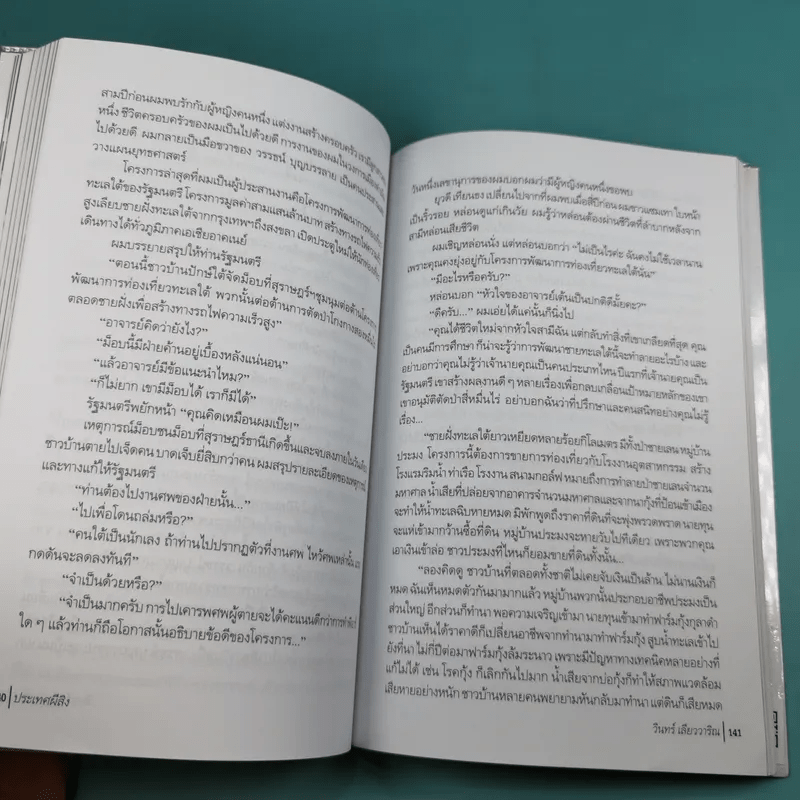 สามปีก่อนผมพบรักกับผู้หญิงคนหนึ่ง แต่งงานสร้างครอบครัว เรามีลูก
หนึ่ง ชีวิตครอบครัวของผมเป็นไปด้วยดี การงานของผมในวงการเมือง
ไปด้วยดี ผมกลายเป็นมือขวาของ วรรธน์ บุญบรรลาย เป็นคน
วางแผนยุทธศาสตร์
โครงการล่าสุดที่ผมเป็นผู้ประสานงานคือโครงการพัฒนาการท่องเที่ยว
ทะเลใต้ของรัฐมนตรี โครงการมูลค่าสามแสนล้านบาท สร้างทางรถไฟความเร็ว
สูงเลียบชายฝั่งทะเลใต้จากกรุงเทพฯ ถึงสงขลา เปิดประตูใหม่ให้นักท่องเที่ยว
เดินทางได้ทั่วภูมิภาคเอเชียอาคเนย์
ผมบรรยายสรุปให้ท่านรัฐมนตรี
“ตอนนี้ชาวบ้านปักษ์ใต้จัดม็อบที่สุราษฎร์ฯ ชุมนุมต่อต้านโครงการ
พัฒนาการท่องเที่ยวทะเลใต้ พวกนั้นต่อต้านการตัดป่าโกงกางสองหมื่นไร่
ตลอดชายฝั่งเพื่อสร้างทางรถไฟความเร็วสูง”
“อาจารย์คิดว่ายังไง?”
“ม็อบนี้มีฝ่ายค้านอยู่เบื้องหลังแน่นอน”
“แล้วอาจารย์มีข้อแนะนำไหม?”
“ก็ไม่ยาก เขามีม็อบได้ เราก็มีได้”
รัฐมนตรีพยักหน้า “คุณคิดเหมือนผมเป๊ะ!”
เหตุการณ์ม็อบชนม็อบที่สุราษฎร์ธานีเกิดขึ้นและจบลงภายในวันเดียว
ชาวบ้านตายไปเจ็ดคน บาดเจ็บยี่สิบกว่าคน ผมสรุปรายละเอียดของเหตุการณ์
และทางแก้ให้รัฐมนตรี
“ท่านต้องไปงานศพของฝ่ายนั้น...”
“ไปเพื่อโดนถล่มหรือ?”
“คนใต้เป็นนักเลง ถ้าท่านไปปรากฏตัวที่งานศพ ไหว้ศพเหล่านั้น
กดดันจะลดลงทันที”
“จำเป็นด้วยหรือ?”
“จำเป็นมากครับ การไปเคารพศพผู้ตายจะได้คะแนนดีกว่าการทำ
ใด ๆ แล้วท่านก็ถือโอกาสนั้นอธิบายข้อดีของโครงการ...”
0 | ประเทศผีสิง
วันหนึ่งเลขานุการของผมบอกผมว่ามีผู้หญิงคนหนึ่งขอพบ
ยุวดี เทียนธง เปลี่ยนไปจากที่ผมพบเมื่อสี่ปีก่อน ผมขาวแซมเทา ใบหน้า
เป็นริ้วรอย หล่อนดูแก่เกินวัย ผมรู้ว่าหล่อนต้องผ่านชีวิตที่ลำบากหลังจาก
สามีหล่อนเสียชีวิต
ผมเชิญหล่อนนั่ง แต่หล่อนบอกว่า “ไม่เป็นไรค่ะ ฉันคงไม่ใช้เวลานาน
เพราะคุณคงยุ่งอยู่กับโครงการพัฒนาการท่องเที่ยวทะเลใต้นั่น”
“มีอะไรหรือครับ?”
หล่อนบอก “หัวใจของอาจารย์เต้นเป็นปกติดีมั้ยคะ?”
“ดีครับ...” ผมเอ่ยได้แค่นั้นก็นิ่งไป
“คุณได้ชีวิตใหม่จากหัวใจสามีฉัน แต่กลับทำสิ่งที่เขาเกลียดที่สุด คุณ
เป็นคนมีการศึกษา ก็น่าจะรู้ว่าการพัฒนาชายทะเลใต้นี้จะทำลายอะไรบ้าง และ
อย่าบอกว่าคุณไม่รู้ว่าเจ้านายคุณเป็นคนประเภทไหน ปีแรกที่เจ้านายคุณเป็น
รัฐมนตรี เขาสร้างผลงานดี ๆ หลายเรื่องเพื่อกลบเกลื่อนเป้าหมายหลักของเขา
เขาอนุมัติตัดป่าสี่หมื่นไร่ อย่าบอกฉันว่าที่ปรึกษาและคนสนิทอย่างคุณไม่รู้
เรื่อง...
“ชายฝั่งทะเลใต้ยาวเหยียดหลายร้อยกิโลเมตร มีทั้งป่าชายเลน หมู่บ้าน
ประมง โครงการนี้ต้องการขายการท่องเที่ยวกับโรงงานอุตสาหกรรม สร้าง
โรงแรมริมน้ำ ท่าเรือ โรงงาน สนามกอล์ฟ หมายถึงการทำลายป่าชายเลนจำนวน
มหาศาล น้ำเสียที่ปล่อยจากอาคารจำนวนมหาศาลและจากนากุ้งที่ป้อนเข้าเมือง
จะทำให้น้ำทะเลฉิบหายหมด มิพักพูดถึงราคาที่ดินที่จะพุ่งพรวดพราด นายทุน
จะแห่เข้ามากว้านซื้อที่ดิน หมู่บ้านประมงจะหายวับไปทีเดียว เพราะพวกคุณ
เอาเงินเข้าล่อ ชาวประมงที่ไหนก็ยอมขายที่ดินทั้งนั้น...
“ลองคิดดู ชาวบ้านที่ตลอดทั้งชาติไม่เคยจับเงินเป็นล้าน ไม่นานเงินก็
หมด ฉันเห็นหมดตัวกันมามากแล้ว หมู่บ้านพวกนั้นประกอบอาชีพประมงเป็น
ส่วนใหญ่ อีกส่วนก็ทำนา พอความเจริญเข้ามา นายทุนเข้ามาทำฟาร์มกุ้งกุลาดำ
ชาวบ้านเห็นได้ราคาดีก็เปลี่ยนอาชีพจากทำนามาทำฟาร์มกุ้ง สูบน้ำทะเลเข้าไป
ยังที่นา ไม่กี่ปีต่อมาฟาร์มกุ้งล้มระนาว เพราะมีปัญหาทางเทคนิคหลายอย่างที่
แก้ไม่ได้ เช่น โรคกุ้ง ก็เลิกกันไปมาก น้ำเสียจากบ่อกุ้งก็ทำให้สภาพแวดล้อม
เสียหายอย่างหนัก ชาวบ้านหลายคนพยายามหันกลับมาทำนา แต่ดินก็เสียหมด
วินทร์ เลียววาริณ | 141